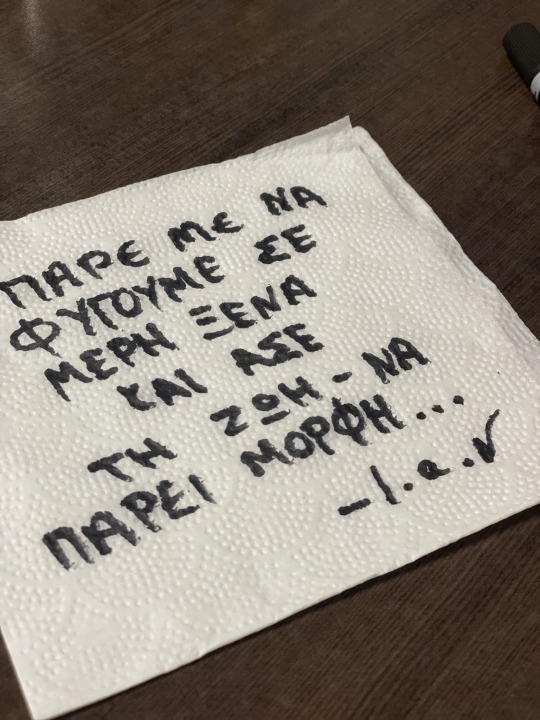 ΠΑΡΕ ΜΕ ΝΑ
ΦΥΓΟΥΜΕ ΣΕ
ΜΕΡΗ ΞΕΝΑ
ΚΑΙ ΑΣΕ
ΤΗ ΖΩΗ - ΝΑ
ΠΑΡΕΙ ΜΟΡΦΗ...
- l.a.v